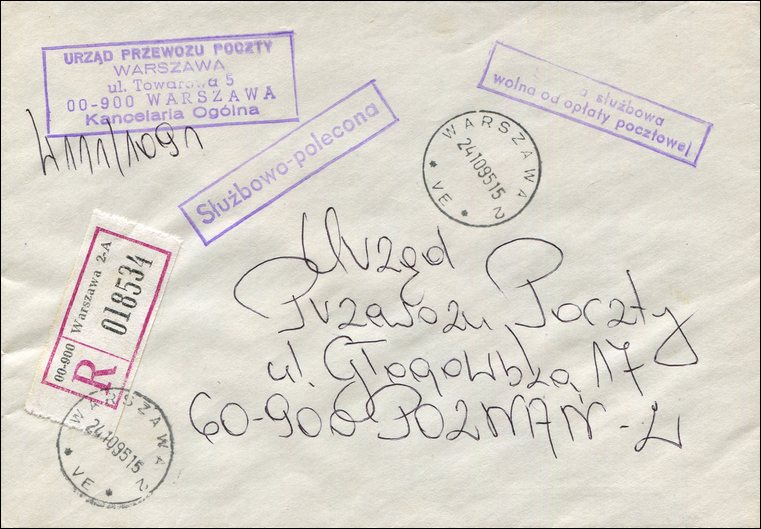 URZĄD PRZEWOZU POCZTY
WARSZAWA
ul. Towarowa 5
00-900 WARSZAWA
Kancelaria Ogólna
służbowa
wolna od opłaty pocztowej
Służbowo-polecona
WARSZAWA 2
24109515
* VE *
00-900 Warszawa 2-A
R 018534
Urząd
Przewozu Poczty
ul. Głogowska 17
60-900 POZNAŃ -2
WARSZAWA 2
24109515
* VE *